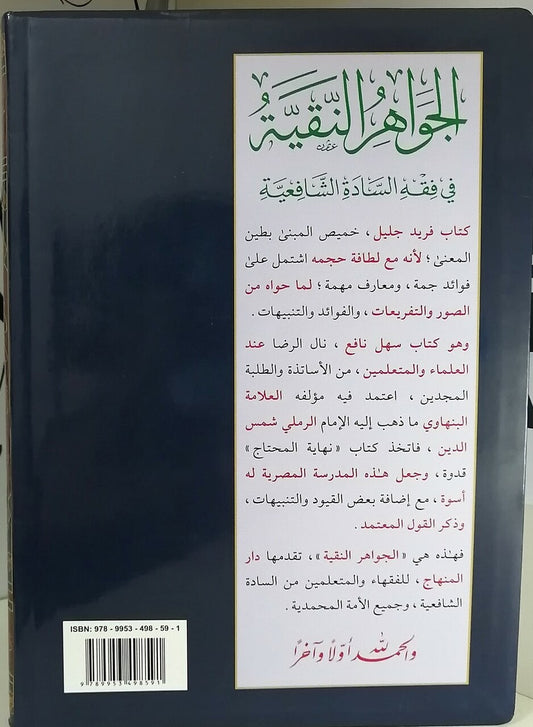 الجَوَاهِرُ النَّقِيَّةُ
فِي فِقْهِ السَّادَةِ الشَّافِعِيَّةِ
كتاب فريد جليل ، خميص المبنىٰ بطين
المعنىٰ ؛ لأنه مع لطافة حجمه اشتمل علىٰ
فوائد جمة ، ومعارف مهمة ؛ لما حواه من
الصور والتفريعات ، والفوائد والتنبيهات .
وهو كتاب سهل نافع ، نال الرضا عند
العلماء والمتعلمين ، من الأساتذة والطلبة
المجدين ، اعتمد فيه مؤلفه العلامة
البنهاوي ما ذهب إليه الإمام الرملي شمس
الدين ، فاتخذ كتاب «نهاية المحتاج»
قدوة ، وجعل هـٰذه المدرسة المصرية له
أسوة ، مع إضافة بعض القيود والتنبيهات ،
وذكر القول المعتمد .
فهـٰذه هي «الجواهر النقية» ، تقدمها دار
المنهاج ، للفقهاء والمتعلمين من السادة
الشافعية ، وجميع الأمة المحمدية .
والحمد لله أوّلاً وآخرًا
ISBN: 978 - 9953 - 498 - 59 - 1
9 789953 498591